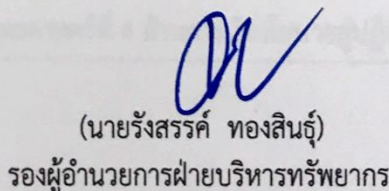 (นายรังสรรค์ ทองสินธุ์)
รองผู้อำนวยการฝ่ายบริหารทรัพยากร